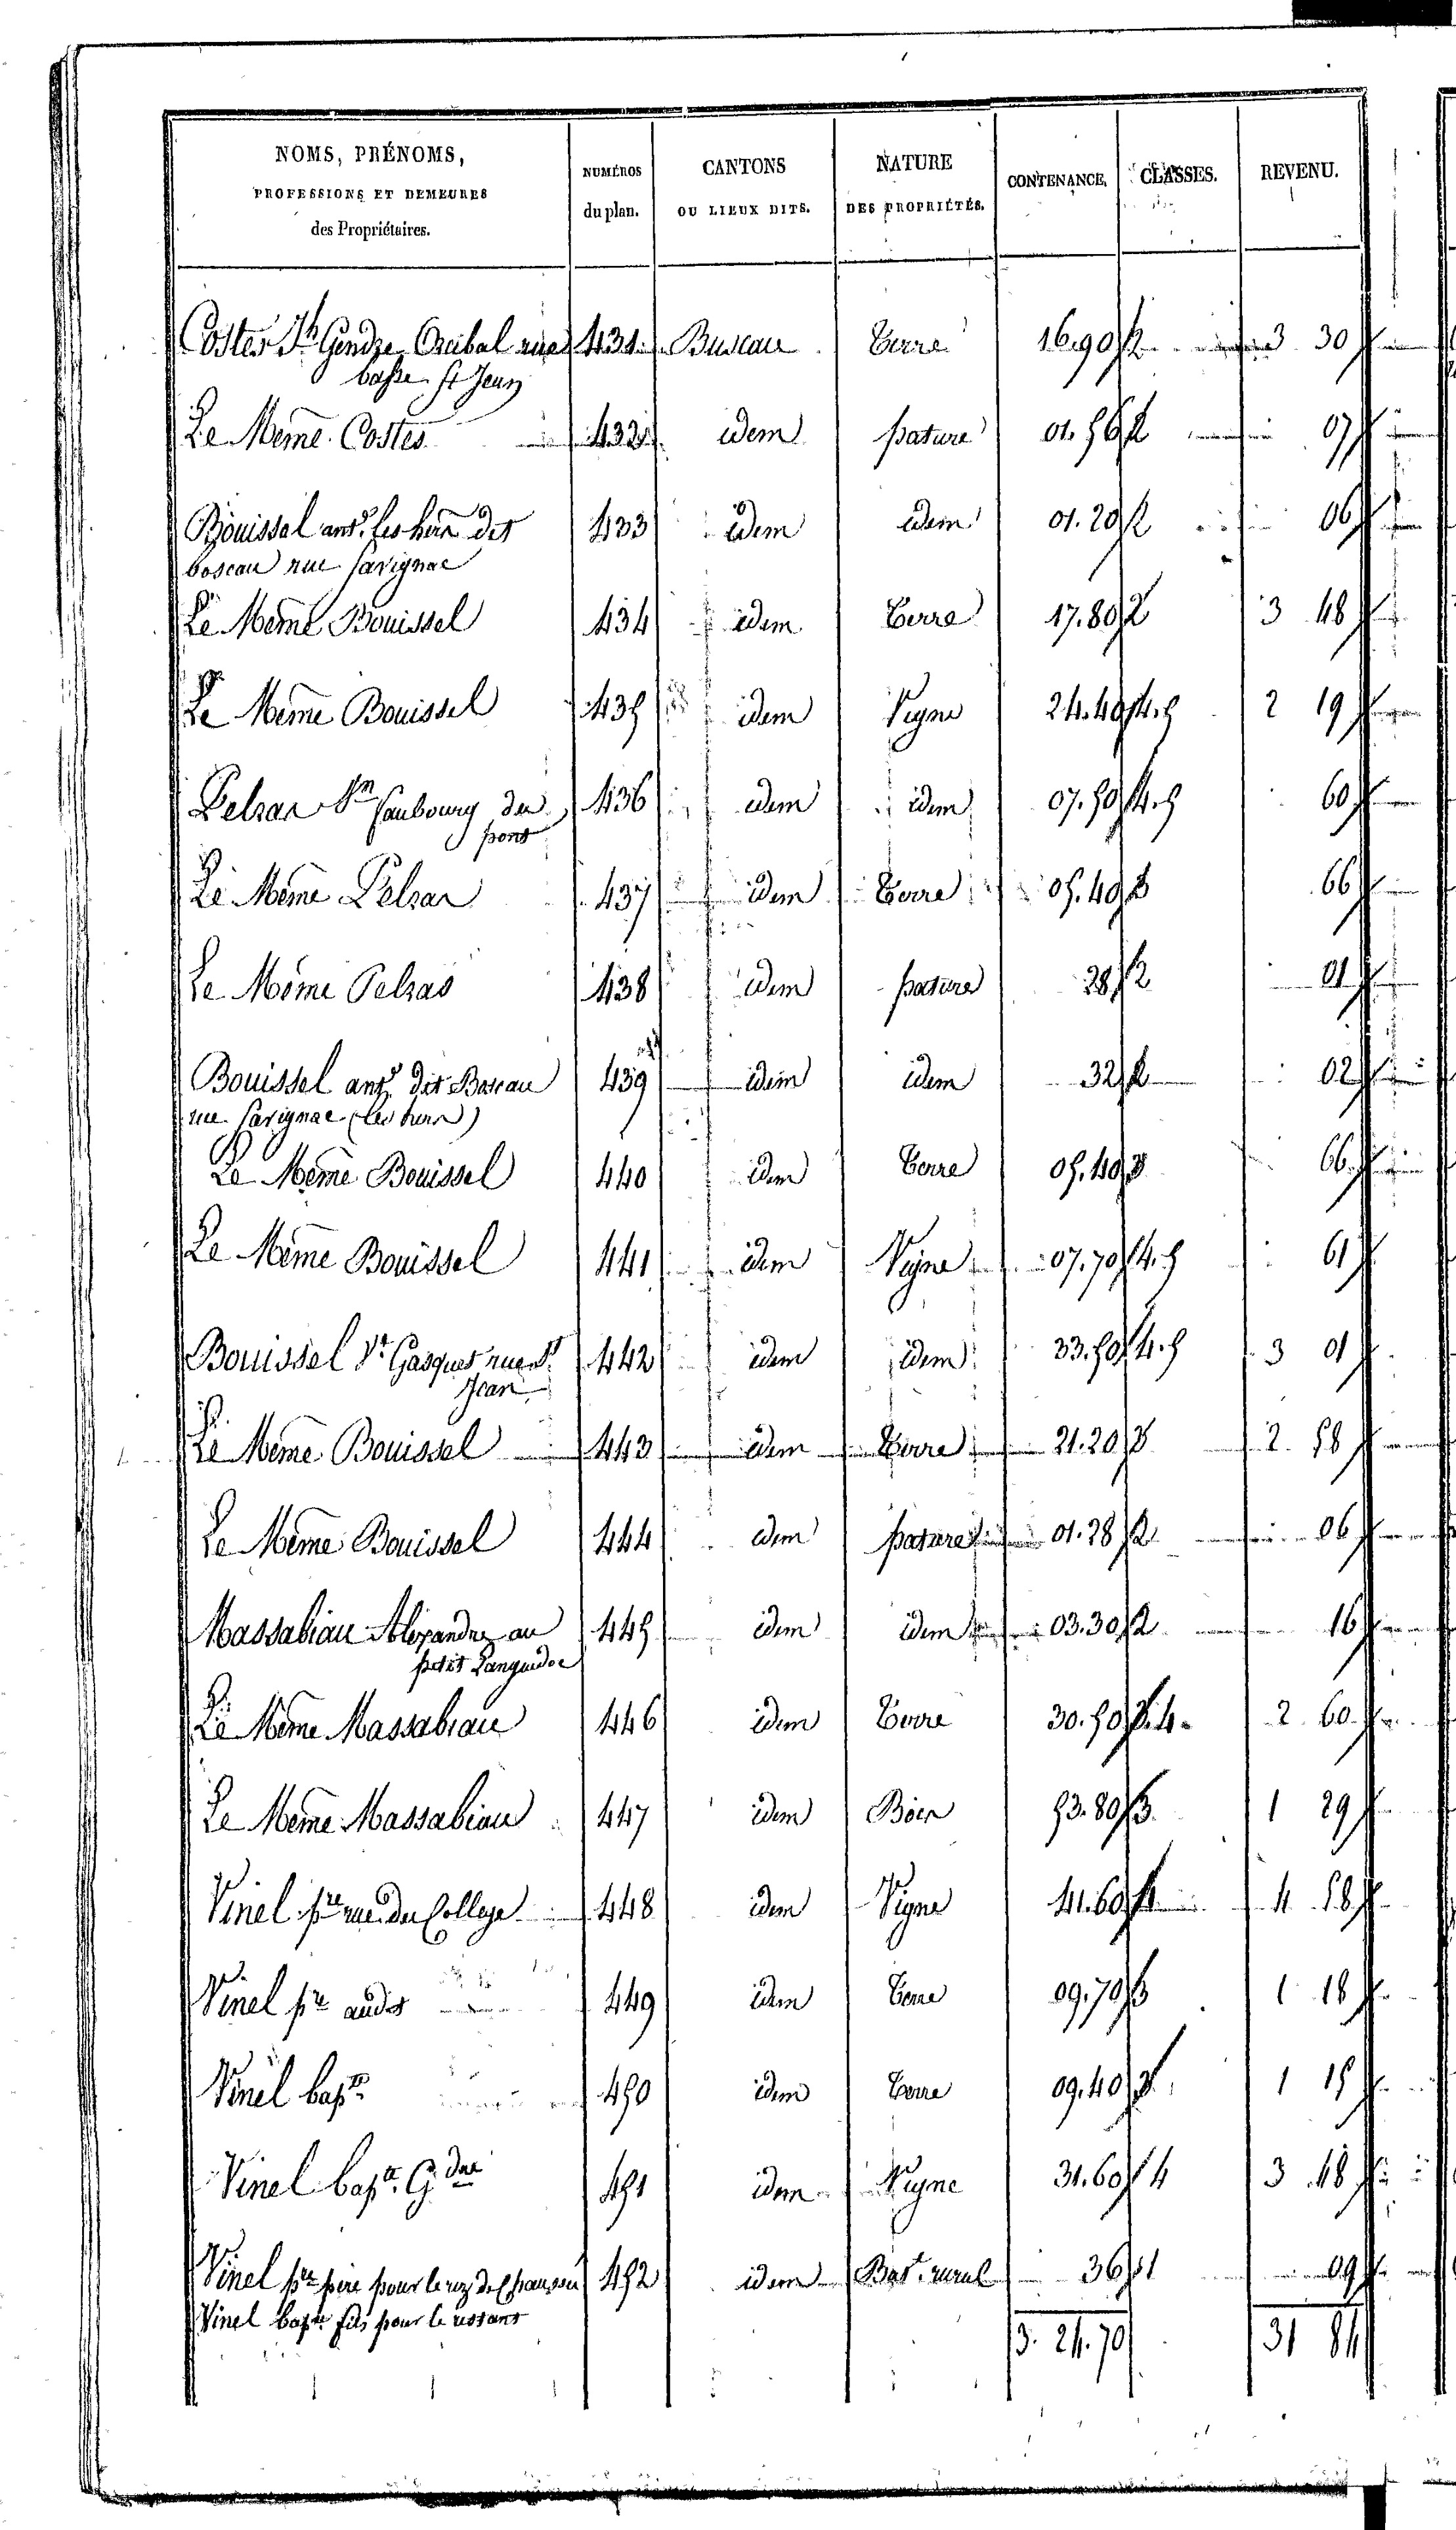 NOMS, PRÉNOMS,
PROFESSIONS ET DEMEURES
des Propriétaires.
NUMÉROS
du plan.
CANTONS
OU LIEUX DITS.
NATURE
DES PROPRIÉTÉS.
CONTENANCE.
CLASSES.
REVENU.
Costes Jh Gendre Crubal rue 431 Buscau Terre 16.90 2 3 30
basse St Jean
Le Meme Costes 432 idem pature 01.56 2 07
Bouissel ant. les hers dit 433 idem idem 01.20 2 06
boscau rue Savignac
Le Meme Bouissel 434 idem Terre 17.80 2 3 48
Le Meme Bouissel 435 idem Vigne 24.40 4.5 2 19
Pelras faubourg du 436 idem idem 07.50 4.5 60
pont
Le Meme Pelras 437 idem Terre 05.40 3 66
Le Meme Pelras 438 idem pature 28 2 01
Bouissel ant. dit Boscau 439 idem idem 32 2 02
rue Savignac (les hers)
Le Meme Bouissel 440 idem Terre 05.40 3 66
Le Meme Bouissel 441 idem Vigne 07.70 4.5 61
Bouissel Vt Gasquet rue St 442 idem idem 33.50 4.5 3 01
Jean
Le Meme Bouissel 443 idem Terre 21.20 3 2 58
Le Meme Bouissel 444 idem pature 01.28 2 06
Massabiau Alexandre au 445 idem idem 03.30 2 16
petit Languedoc
Le Meme Massabiau 446 idem Terre 30.50 3.4 2 60
Le Meme Massabiau 447 idem Bois 53.80 3 1 29
Vinel pre rue du College 448 idem Vigne 41.60 4 4 58
Vinel pre audit 449 idem Terre 09.70 3 1 18
Vinel bapte 450 idem Terre 09.40 3 1 15
Vinel bapte G dre 451 idem Vigne 31.60 4 3 48
Vinel pre pere pour le rez de Chaussée 452 idem Bat. rural 36 1 09
Vinel bapte fils pour le restant
3. 24. 70 31 84